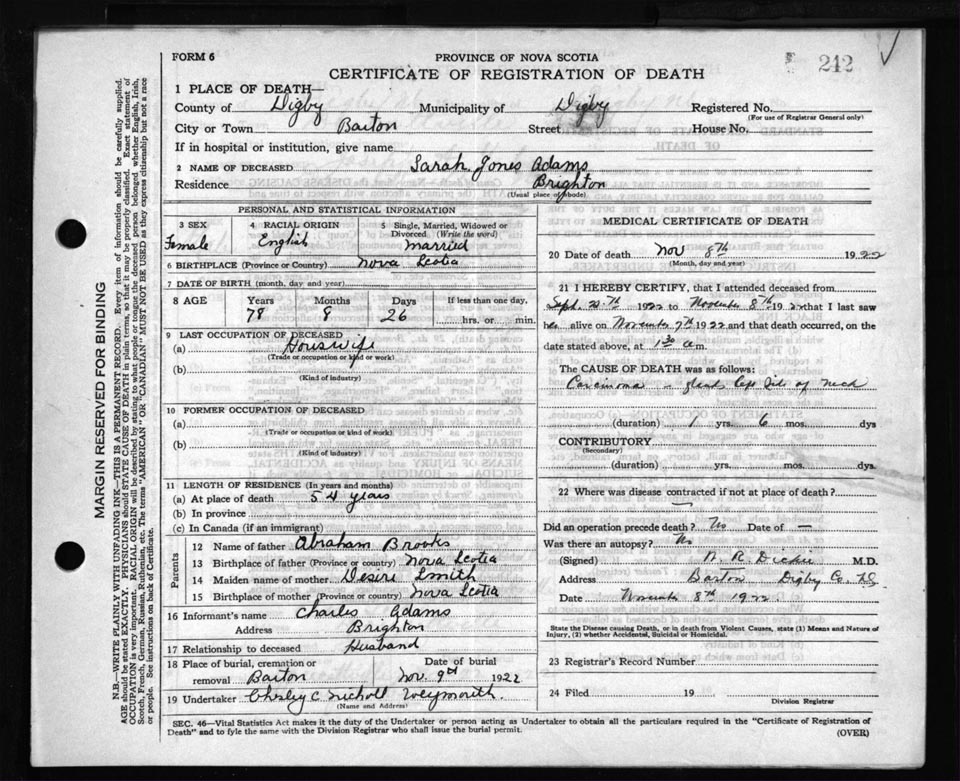 FORM 6
PROVINCE OF NOVA SCOTIA
212
CERTIFICATE OF REGISTRATION OF DEATH
1 PLACE OF DEATH—
County of Digby Municipality of Digby Registered No.
(For use of Registrar General only)
City or Town Barton Street House No.
If in hospital or institution, give name
2 NAME OF DECEASED Sarah Jones Adams
Residence Brighton
(Usual place of abode)
PERSONAL AND STATISTICAL INFORMATION
3 SEX 4 RACIAL ORIGIN 5 Single, Married, Widowed or Divorced (Write the word)
Female English married
6 BIRTHPLACE (Province or Country) Nova Scotia
7 DATE OF BIRTH (month, day and year)
8 AGE Years Months Days If less than one day,
78 8 26 hrs. or min.
9 LAST OCCUPATION OF DECEASED
(a) Housewife
(Trade or occupation or kind of work)
(b)
(Kind of industry)
10 FORMER OCCUPATION OF DECEASED
(a)
(Trade or occupation or kind of work)
(b)
(Kind of industry)
11 LENGTH OF RESIDENCE (In years and months)
(a) At place of death 54 years
(b) In province
(c) In Canada (if an immigrant)
Parents
12 Name of father Abraham Brooks
13 Birthplace of father (Province or country) Nova Scotia
14 Maiden name of mother Desire Smith
15 Birthplace of mother (Province or country) Nova Scotia
16 Informant's name Charles Adams
Address Brighton
17 Relationship to deceased Husband
18 Place of burial, cremation or removal Barton Date of burial Nov. 9th 1922
19 Undertaker Chesley C Nicholl Weymouth
(Name and Address)
MEDICAL CERTIFICATE OF DEATH
20 Date of death Nov 8th 1922
(Month, day and year)
21 I HEREBY CERTIFY, that I attended deceased from
Sept. 1922 to November 8th 1922 that I last saw
her alive on November 7th 1922 and that death occurred, on
date stated above, at 1 30 a m.
The CAUSE OF DEATH was as follows:
Carcinoma – glands left side of neck
(duration) 1 yrs. 6 mos. dys
CONTRIBUTORY
(Secondary)
(duration) yrs. mos. dys.
22 Where was disease contracted if not at place of death?
—
Did an operation precede death? No Date of —
Was there an autopsy? No
(Signed) N. R. Dickie M.D.
Address Barton Digby Co. N.S.
Date November 8th 1922
State the Disease causing Death, or in death from Violent Causes, state (1) Means and Nature of
Injury, (2) whether Accidental, Suicidal or Homicidal.
23 Registrar's Record Number
24 Filed 19
Division Registrar
SEC. 46—Vital Statistics Act makes it the duty of the Undertaker or person acting as Undertaker to obtain all the particulars required in the "Certificate of Registration of
Death" and to fyle the same with the Division Registrar who shall issue the burial permit.
(OVER)
MARGIN RESERVED FOR BINDING
N.B.—WRITE PLAINLY WITH UNFADING INK—THIS IS A PERMANENT RECORD. Every item of information should be carefully supplied.
AGE should be stated EXACTLY. PHYSICIANS should STATE CAUSE OF DEATH in plain terms, so that it may be properly classified. Exact statement of
OCCUPATION is very important. RACIAL ORIGIN will be described by stating to what people or tongue the deceased person belonged whether English, Irish,
Scotch, French, German, Russian, Ruthenian, etc. The terms "AMERICAN" OR "CANADIAN" MUST NOT BE USED as they express citizenship but not a race
or people. See instructions on back of Certificate.